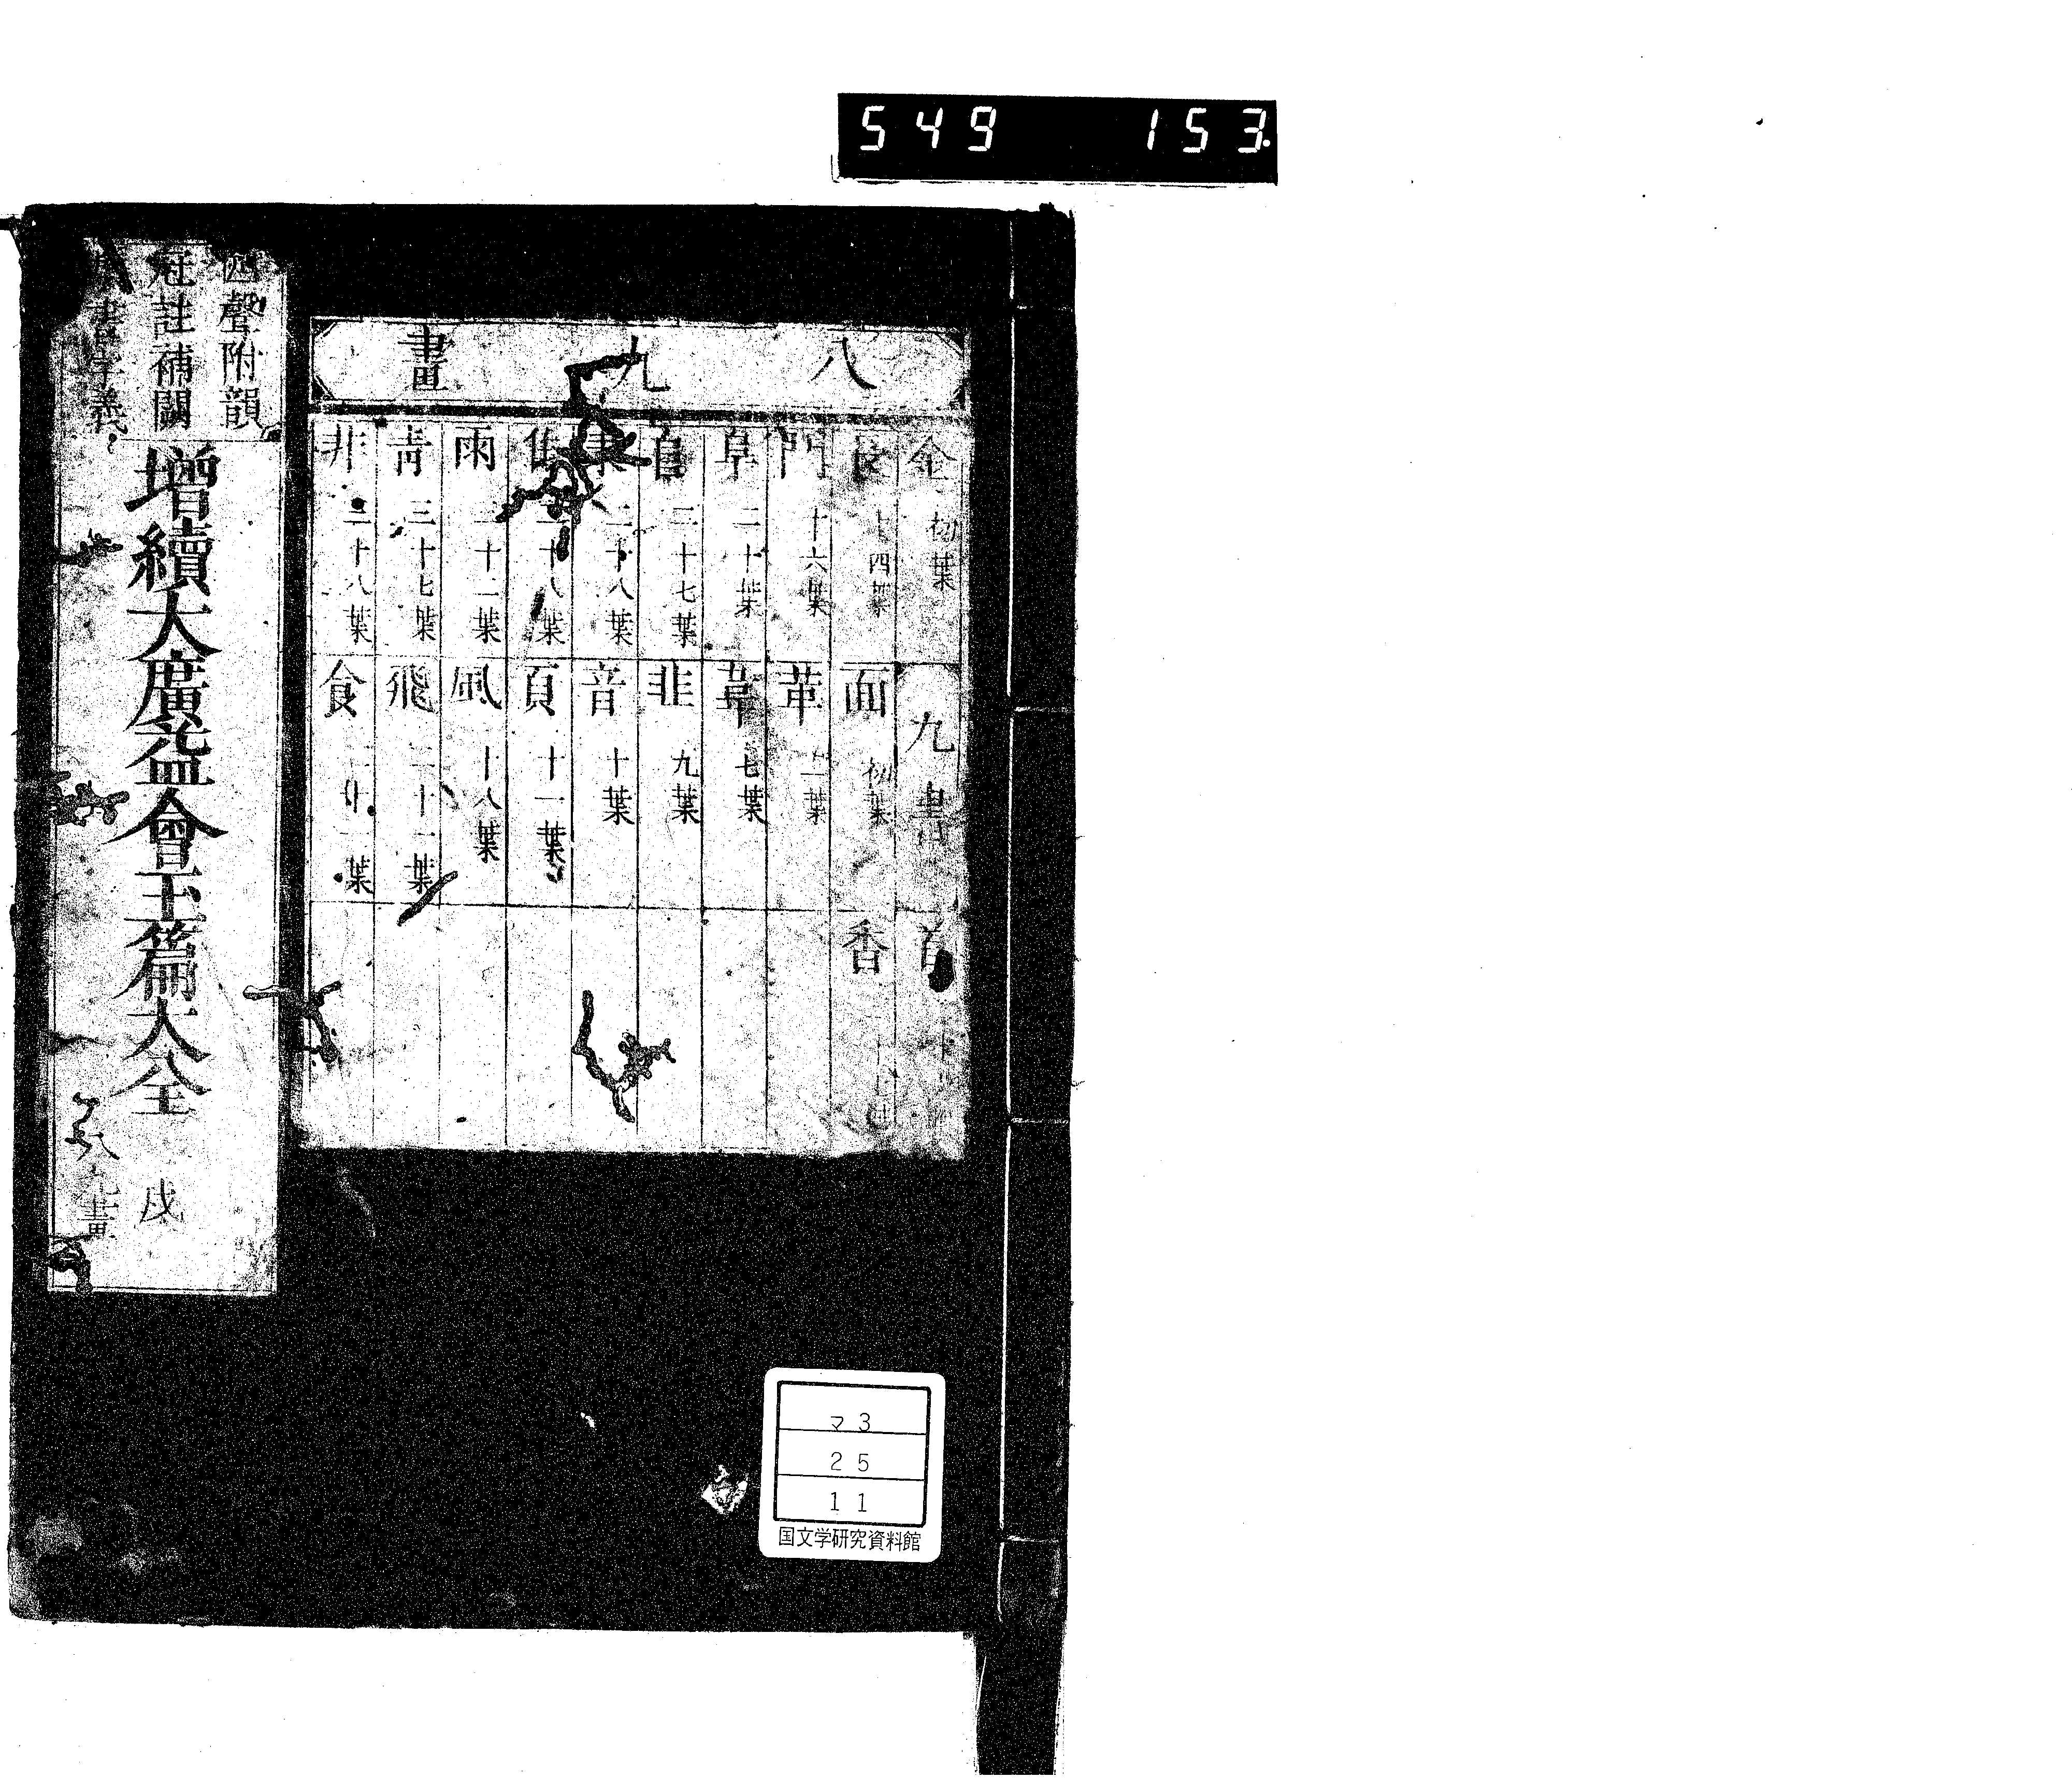 549 153.
八九畫
金 初葉
長 十四葉
門 十六葉
阜 二十葉
二十七葉
隶 二十八葉
隹 二十八葉
雨 三十二葉
靑 三十七葉
非 三十八葉
九畫
面 初葉
革 二葉
韋 七葉
韭 九葉
音 十葉
頁 十一葉
風 十八葉
飛 二十一葉
食 二十一葉
首
香
四聲附韻
冠註補闕
增續大廣益會玉篇大全 戌
八九畫
マ3
25
11
国文学研究資料館